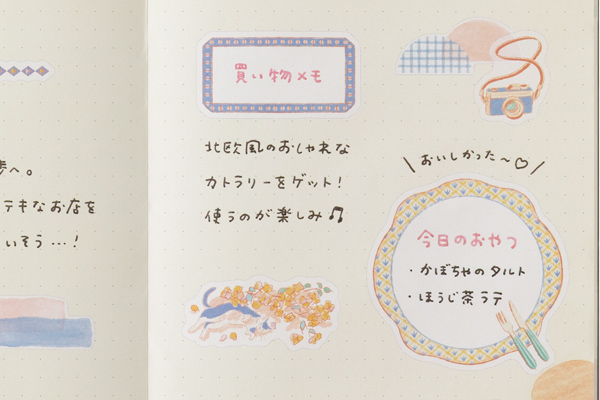 へ。
テキなお店を
いそう…!
買い物メモ
北欧風のおしゃれな
カトラリーをゲット!
使うのが楽しみ♫
\おいしかった~♡/
今日のおやつ
・かぼちゃのタルト
・ほうじ茶ラテ